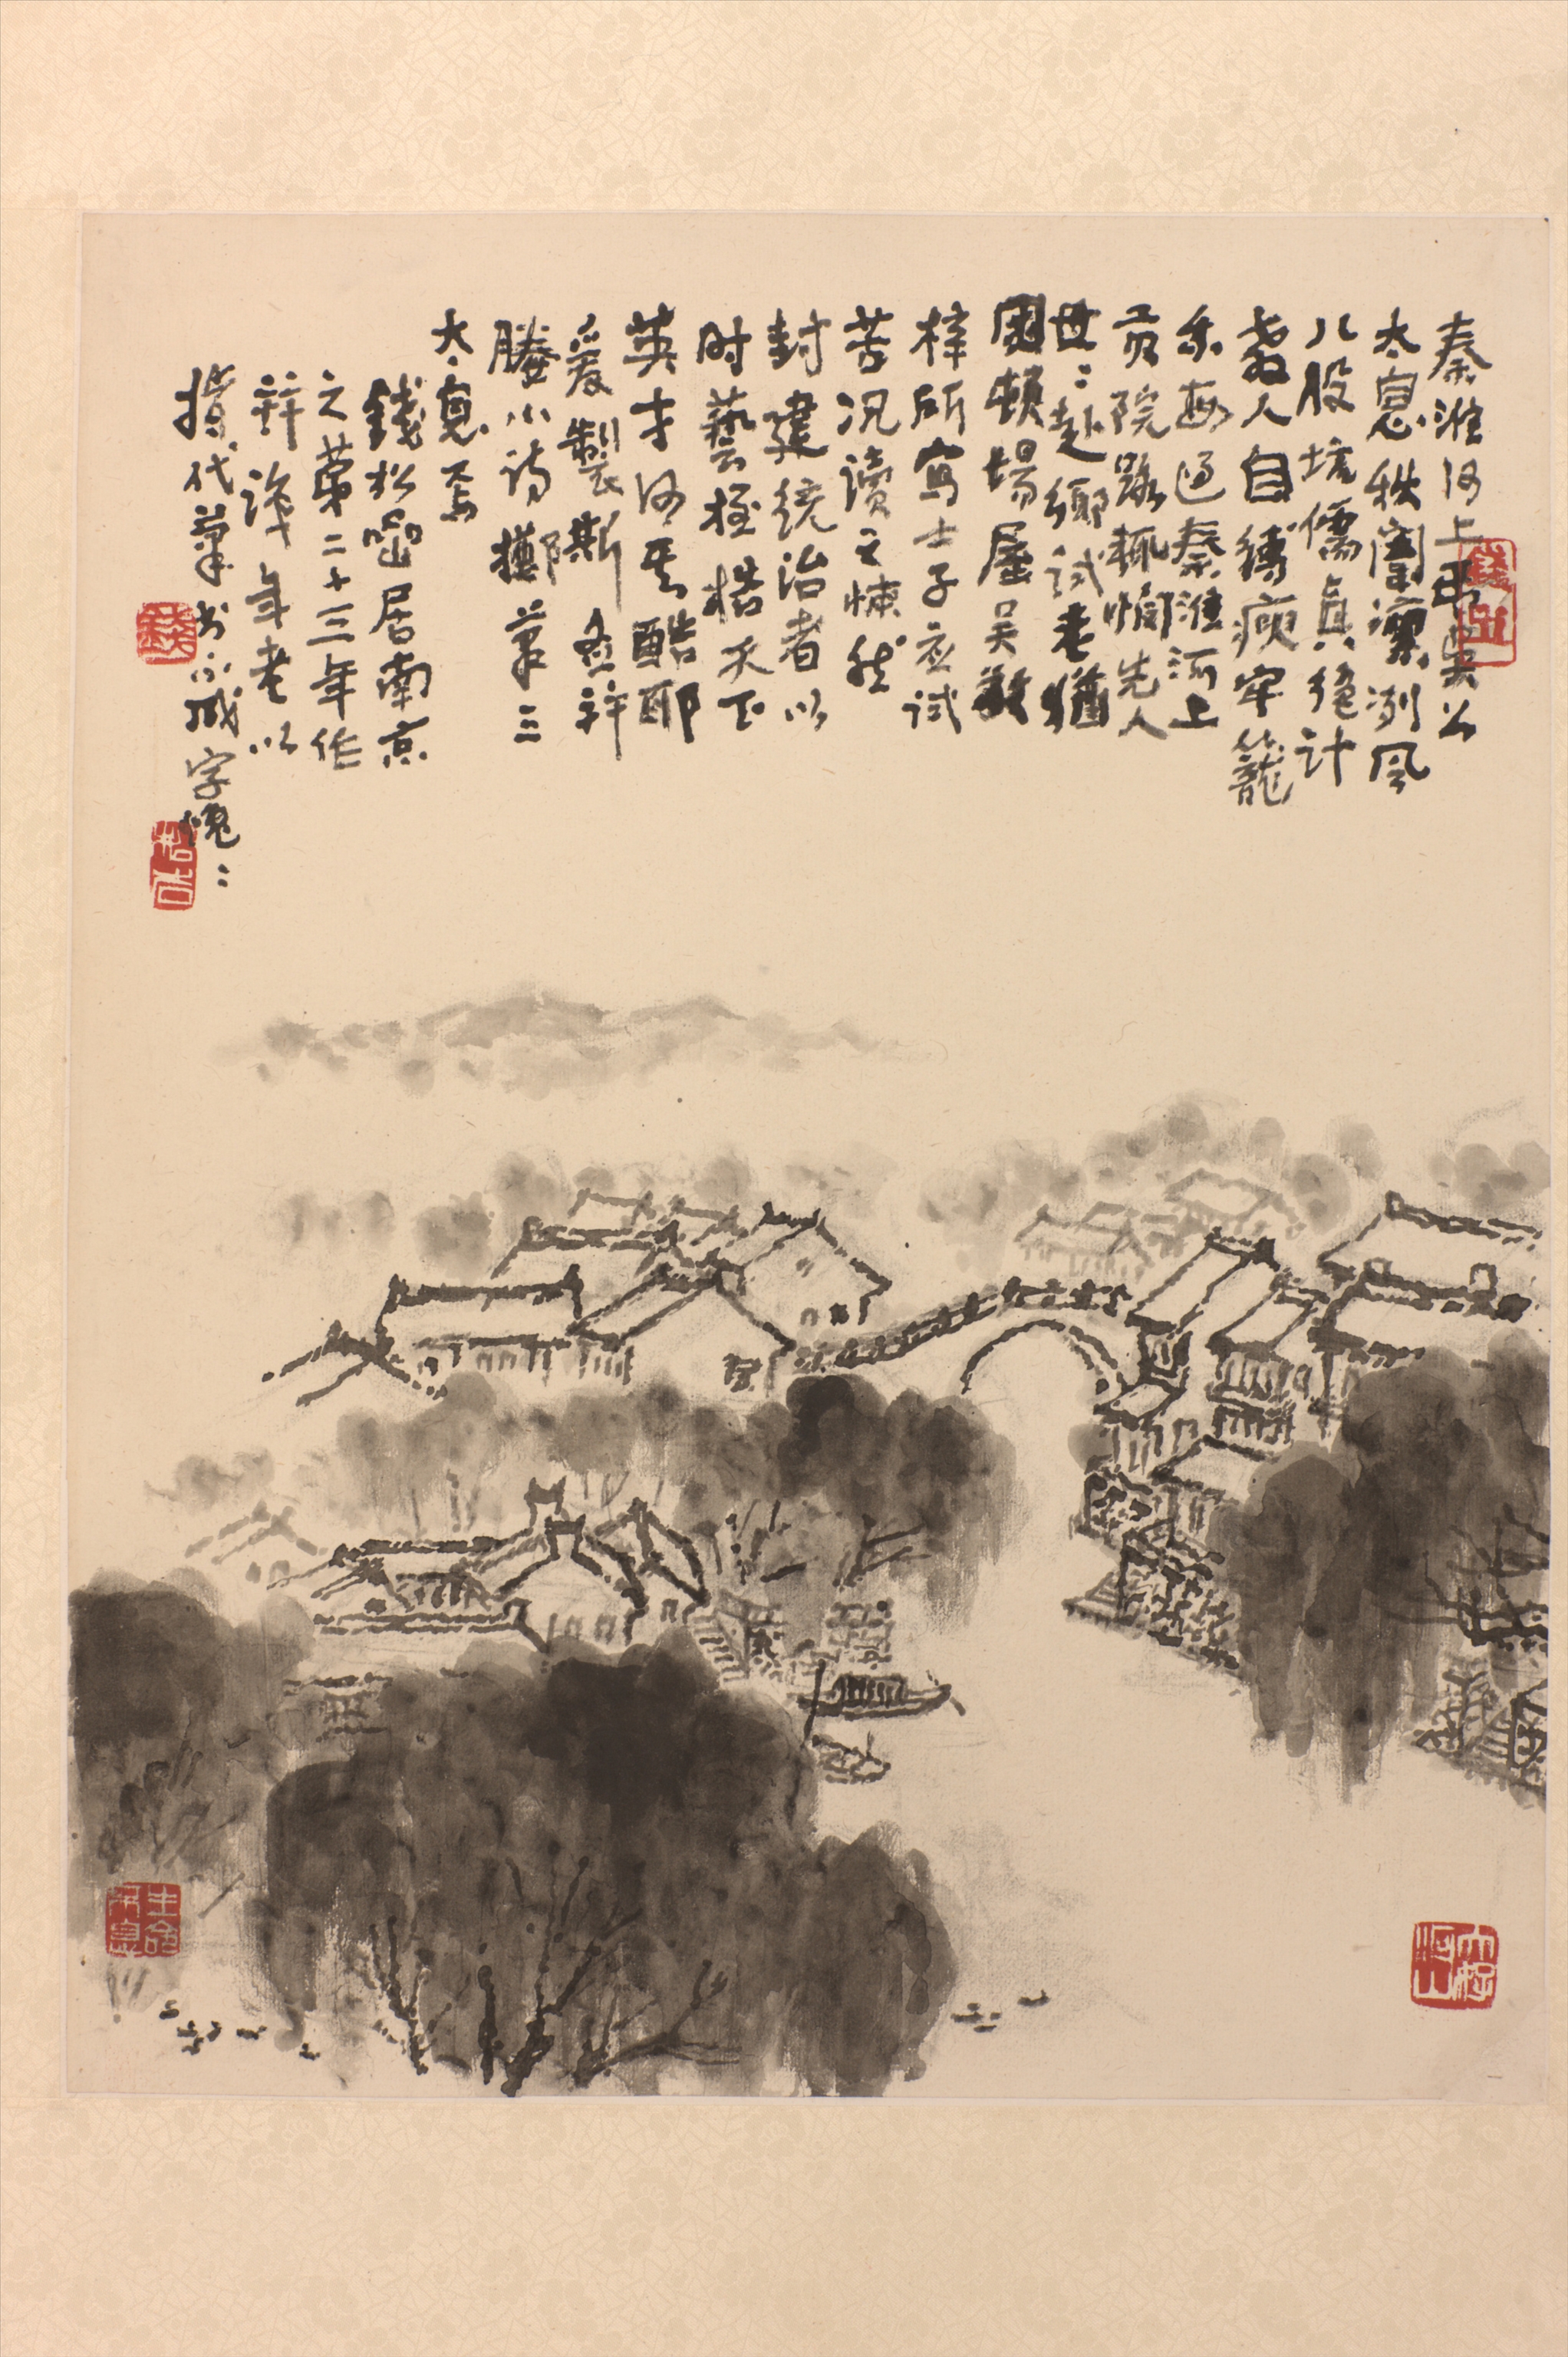 秦淮河上弔吳公
太息秋闈凜冽風
八股坑儒真絕計
教人自縛瘐牢籠
余每過秦淮河上
貢院路輒惻先人
世世赴鄉試老猶
困頓場屋吳敬
梓所寫士子應試
苦況讀之悚然
封建統治者以
時藝桎梏天下
英才何其酷耶
爰製斯圖并
賸小詩擲筆三
太息焉
錢松嵒居南京
之第二十三年作
并識年老以
指代筆書不成字愧愧